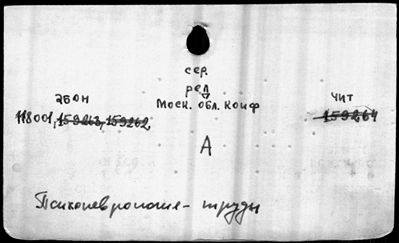 сер.
ред
эбон
Моск. обл. конф
чит
118001, 159263, 159262
159264
А
Психоневрология - труды